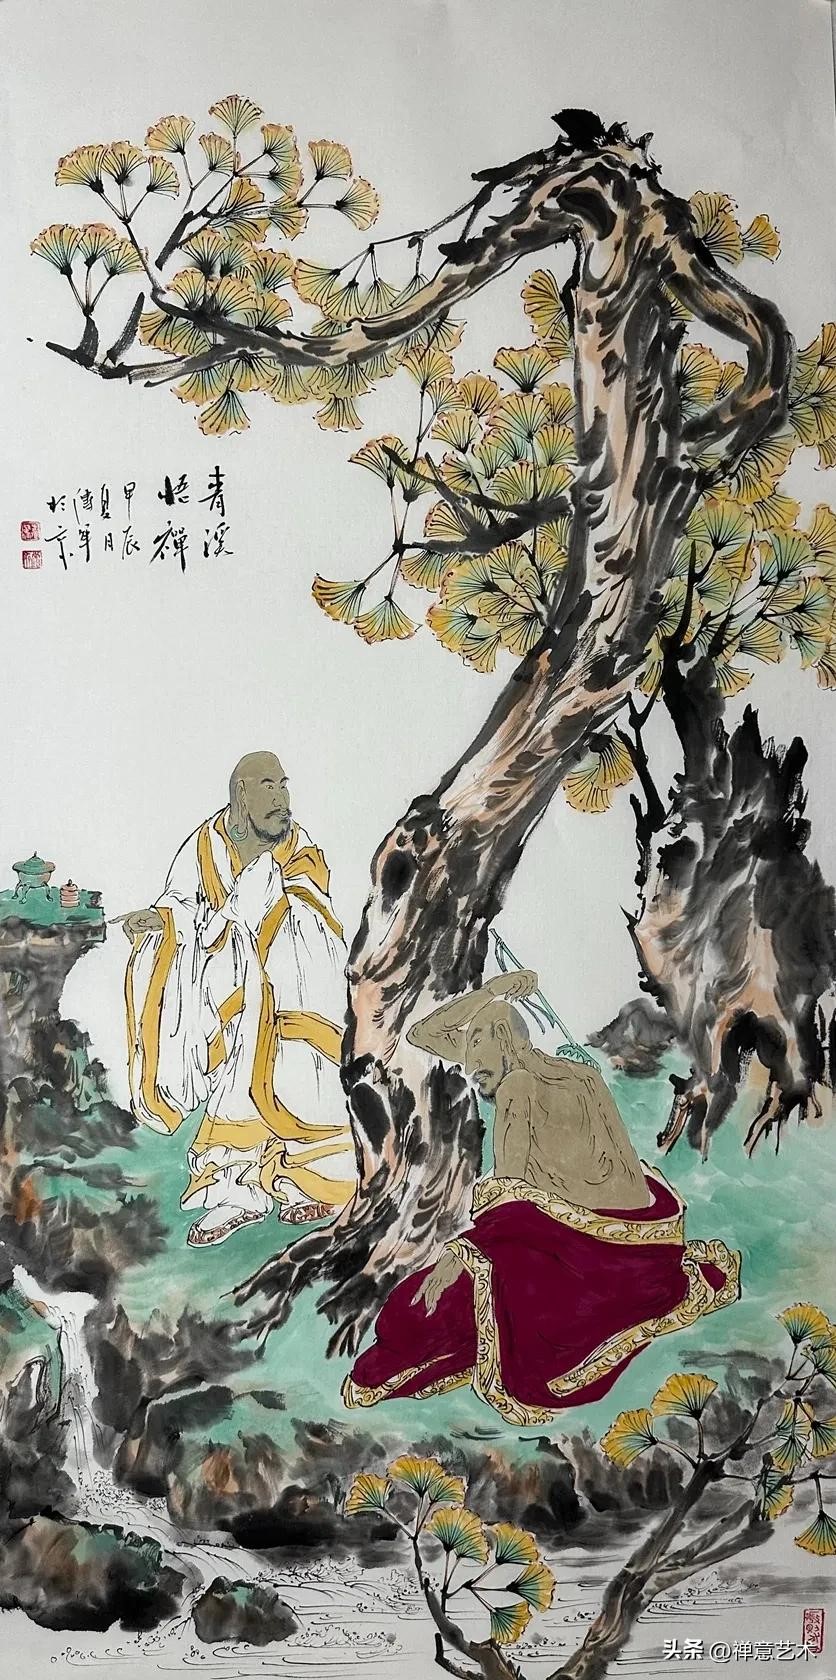 青溪
悟禪
甲辰
夏月
於京
头条 @禅意艺术